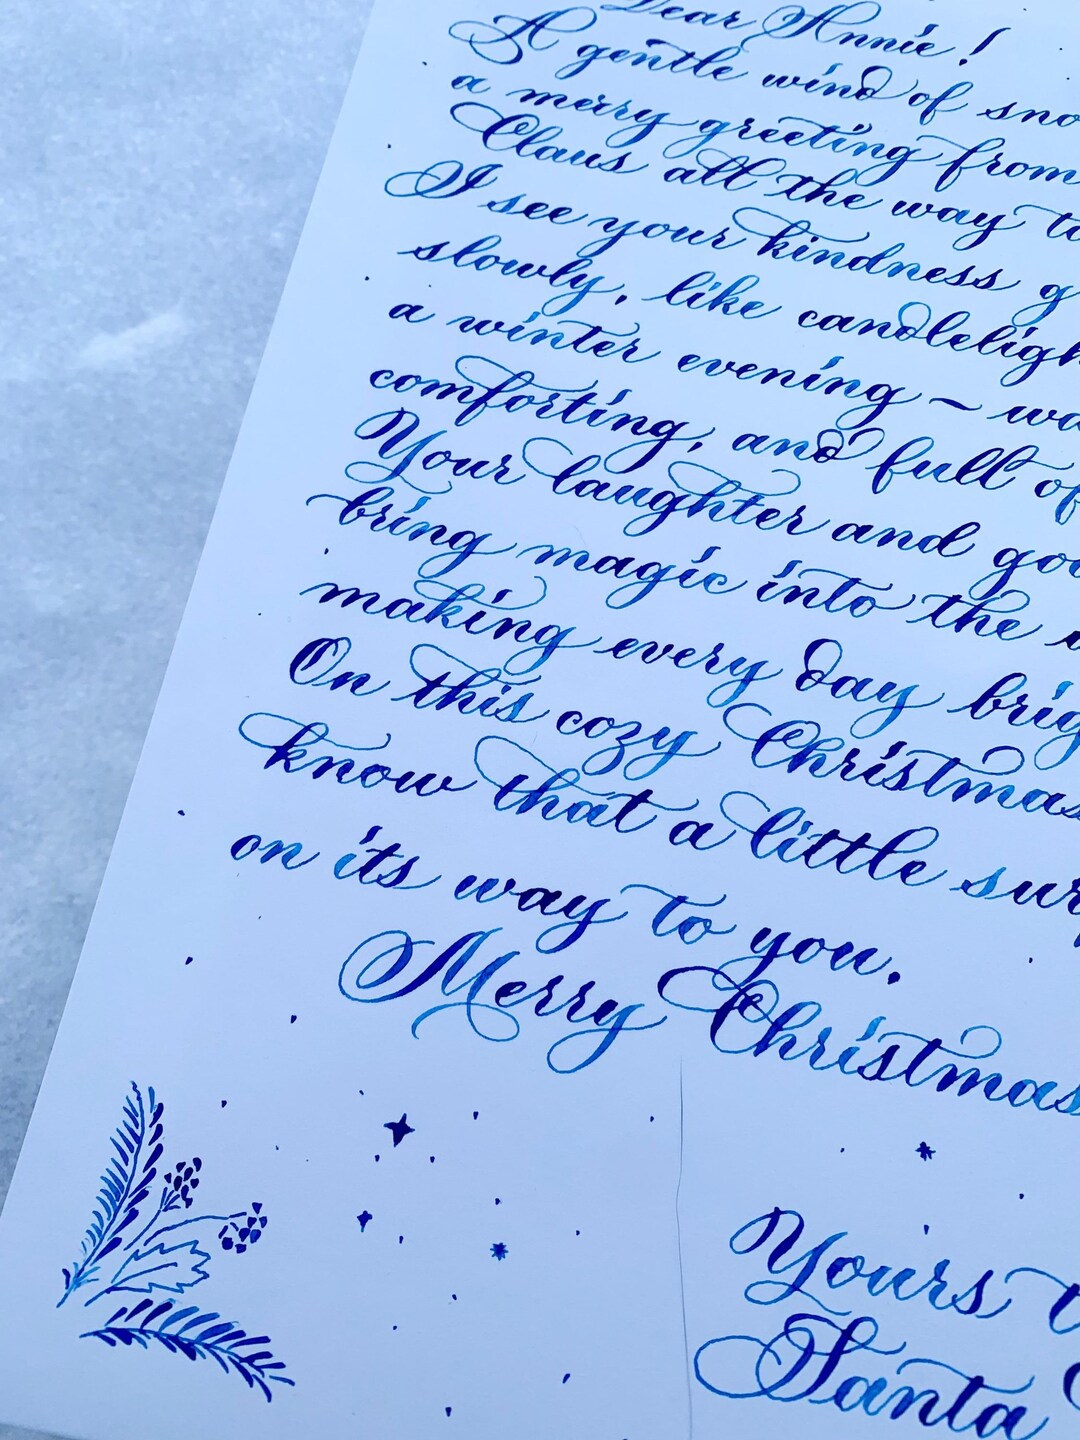 Dear Annie!
A gentle wind of sno
a merry greeting from
Claus all the way to
I see your kindness g
slowly, like candleligh
a winter evening – wa
comforting, and full of
Your laughter and goo
bring magic into the
making every day brig
On this cozy Christmas
know that a little sur
on its way to you.
Merry Christmas
Yours t
Santa